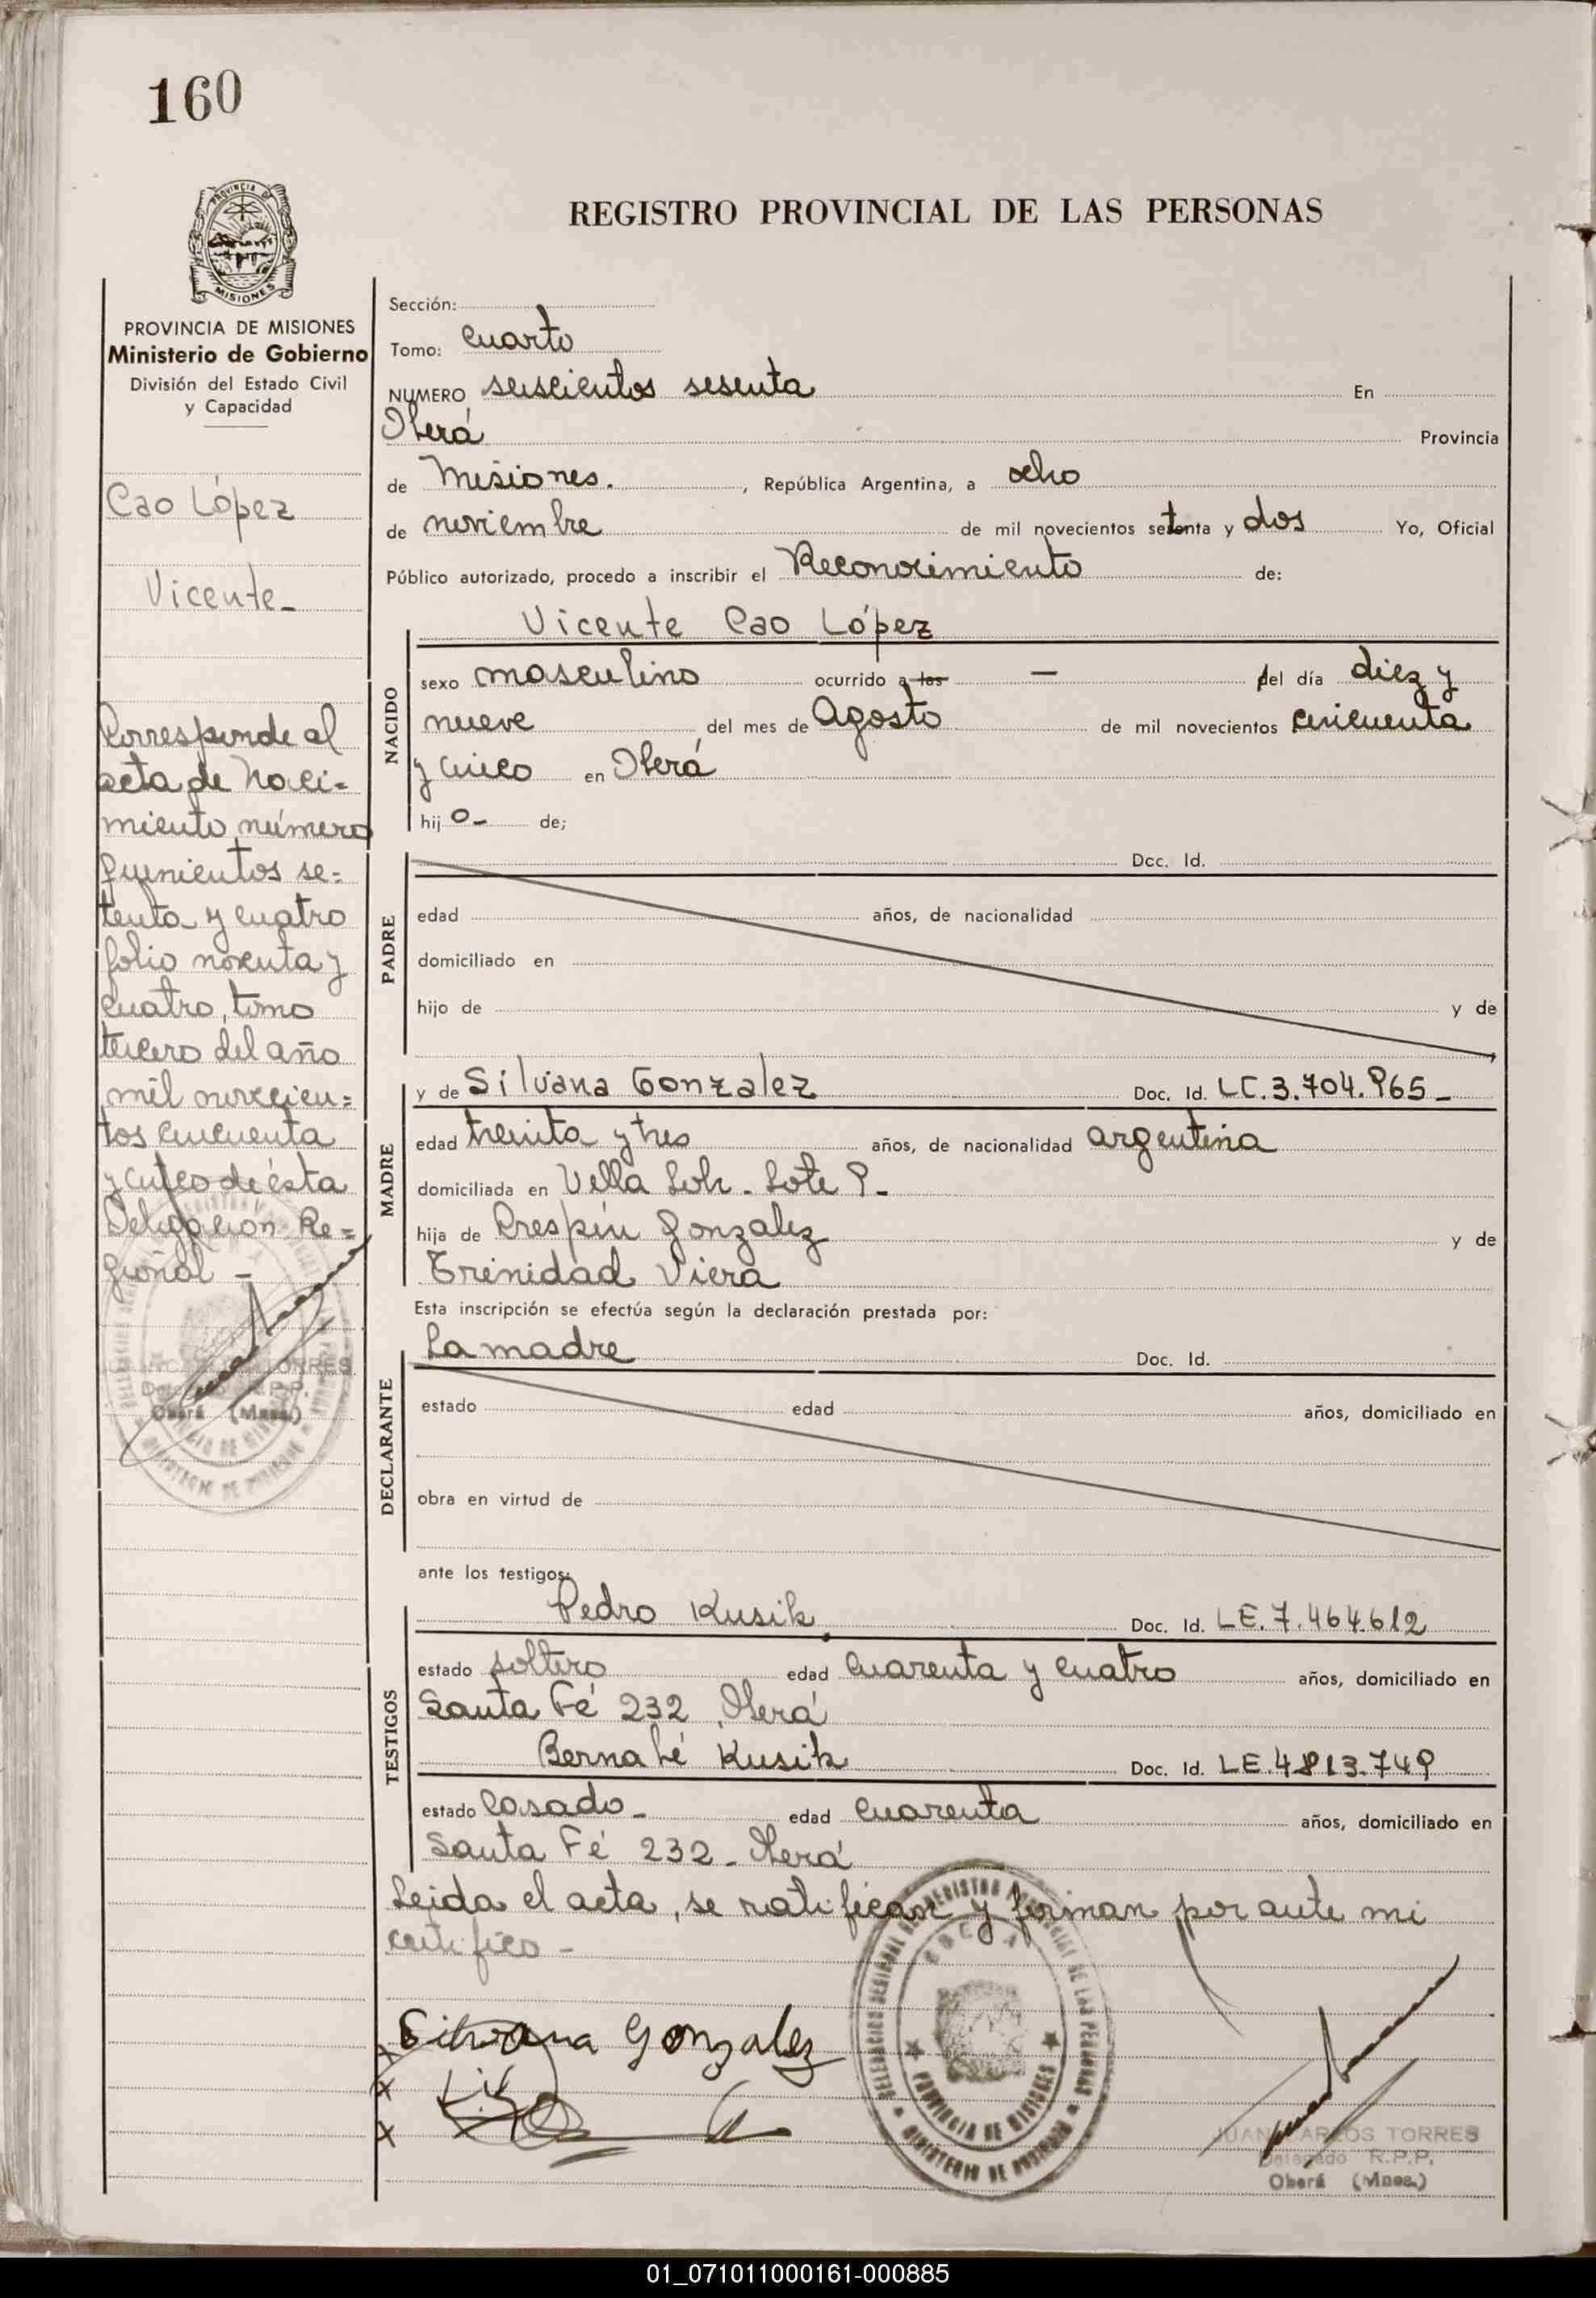 160
PROVINCIA DE
MISIONES
REGISTRO PROVINCIAL DE LAS PERSONAS
PROVINCIA DE MISIONES
Ministerio de Gobierno
División del Estado Civil
y Capacidad
Cao López
Vicente-
Corresponde al
acta de naci=
miento número
quinientos se=
tenta y cuatro
folio noventa y
cuatro, tomo
tercero del año
mil novecien=
tos cincuenta
y cinco de ésta
Delegación Re=
gional -
TORRES
R.P.P.
Oberá (Mnes.)
Sección:
Tomo: Cuarto
NUMERO seiscientos sesenta En
Oberá Provincia
de Misiones. , República Argentina, a ocho
de noviembre de mil novecientos setenta y dos Yo, Oficial
Público autorizado, procedo a inscribir el Reconocimiento de:
Vicente Cao López
NACIDO
sexo masculino ocurrido a las — del día diez y
nueve del mes de Agosto de mil novecientos cincuenta
y cinco en Oberá
hij o- de;
PADRE
Doc. Id.
edad años, de nacionalidad
domiciliado en
hijo de y de
MADRE
y de Silvana Gonzalez Doc. Id. LC.3.704.965-
edad treinta y tres años, de nacionalidad argentina
domiciliada en Villa Loh. Lote 9-
hija de Crespin Gonzalez y de
Trinidad Viera
Esta inscripción se efectúa según la declaración prestada por:
La madre Doc. Id.
DECLARANTE
estado edad años, domiciliado en
obra en virtud de
ante los testigos:
TESTIGOS
Pedro Kusik Doc. Id. LE.7.464.612
estado soltero edad cuarenta y cuatro años, domiciliado en
Santa Fé 232, Oberá
Bernabé Kusik Doc. Id. LE.4.813.749
estado Casado- edad cuarenta años, domiciliado en
Santa Fé 232- Oberá
Leida el acta, se ratifican y firman por ante mi
certifico -
Silvana Gonzalez
x
x
x
DELEGACION REGIONAL DEL REGISTRO PROVINCIAL DE LAS PERSONAS
OBERA
PROVINCIA DE MISIONES
MINISTERIO DE GOBIERNO
JUAN CARLOS TORRES
Delegado R.P.P.
Oberá (Mnes.)
01_071011000161-000885